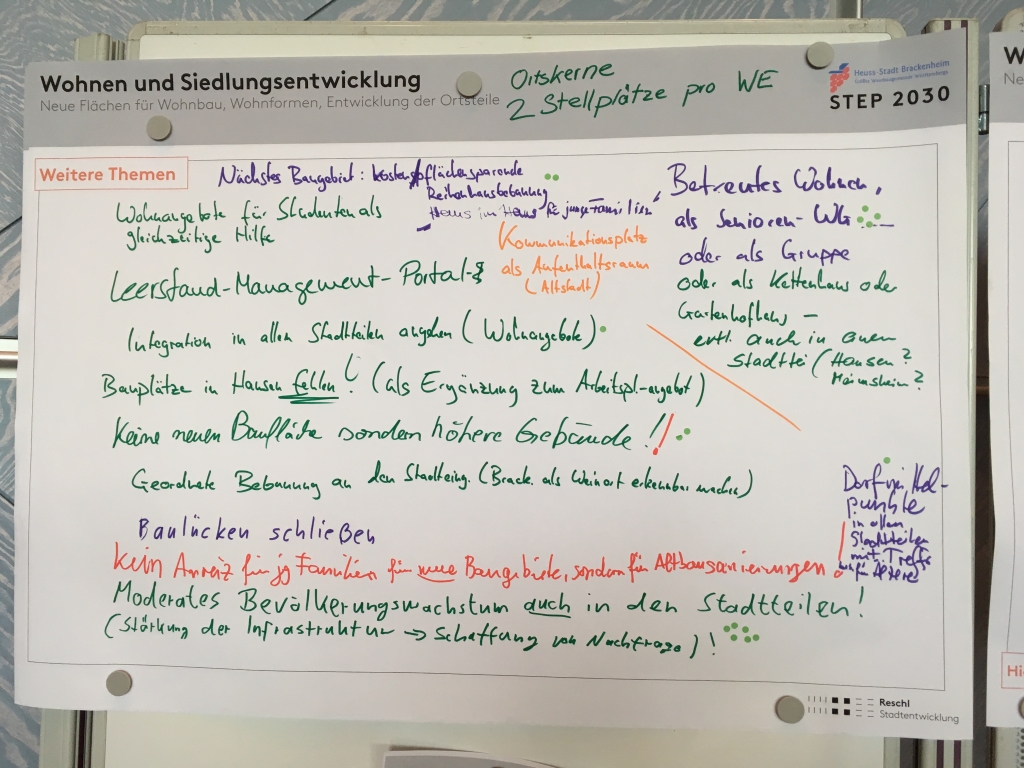 Wohnen und Siedlungsentwicklung
Neue Flächen für Wohnbau, Wohnformen, Entwicklung der Ortsteile
Ortskerne
2 Stellplätze pro WE
Heuss-Stadt Brackenheim
STEP 2030
Weitere Themen
Nächstes Baugebiet: flächensparende
Reihenhausbebauung
Haus im Haus für junge Familien
Wohnangebote für Studenten als
gleichzeitige Hilfe
Kommunikationsplatz
als Aufenthaltsraum
(Altstadt)
Betreutes Wohnen,
als Senioren-WG
oder als Gruppe
oder als Kettenhaus oder
evtl. auch in einem
Stadttei (Hausen?
Meimsheim?
Leerstand-Management-Portal
Integration in allen Stadtteilen angehen (Wohnangebote)
Bauplätze in Hausen fehlen! (als Ergänzung zum Arbeitspl.-angebot)
Keine neuen Baufläche sondern höhere Gebäude!!
Geordnete Bebauung an den Stadteing. (Brack. als Weinort erkennbar machen)
Baulücken schließen
Kein Anreiz für jg Familien für neue Baugebiete, sondern für Altbausanierungen!
Moderates Bevölkerungswachstum auch in den Stadtteilen!
(Stärkung der Infrastruktur → Schaffung von Nachfrage)!
punkte
in allen
Stadtteilen
mit Treffs
für Ältere
Reschl
Stadtentwicklung
W
Ne
Hi